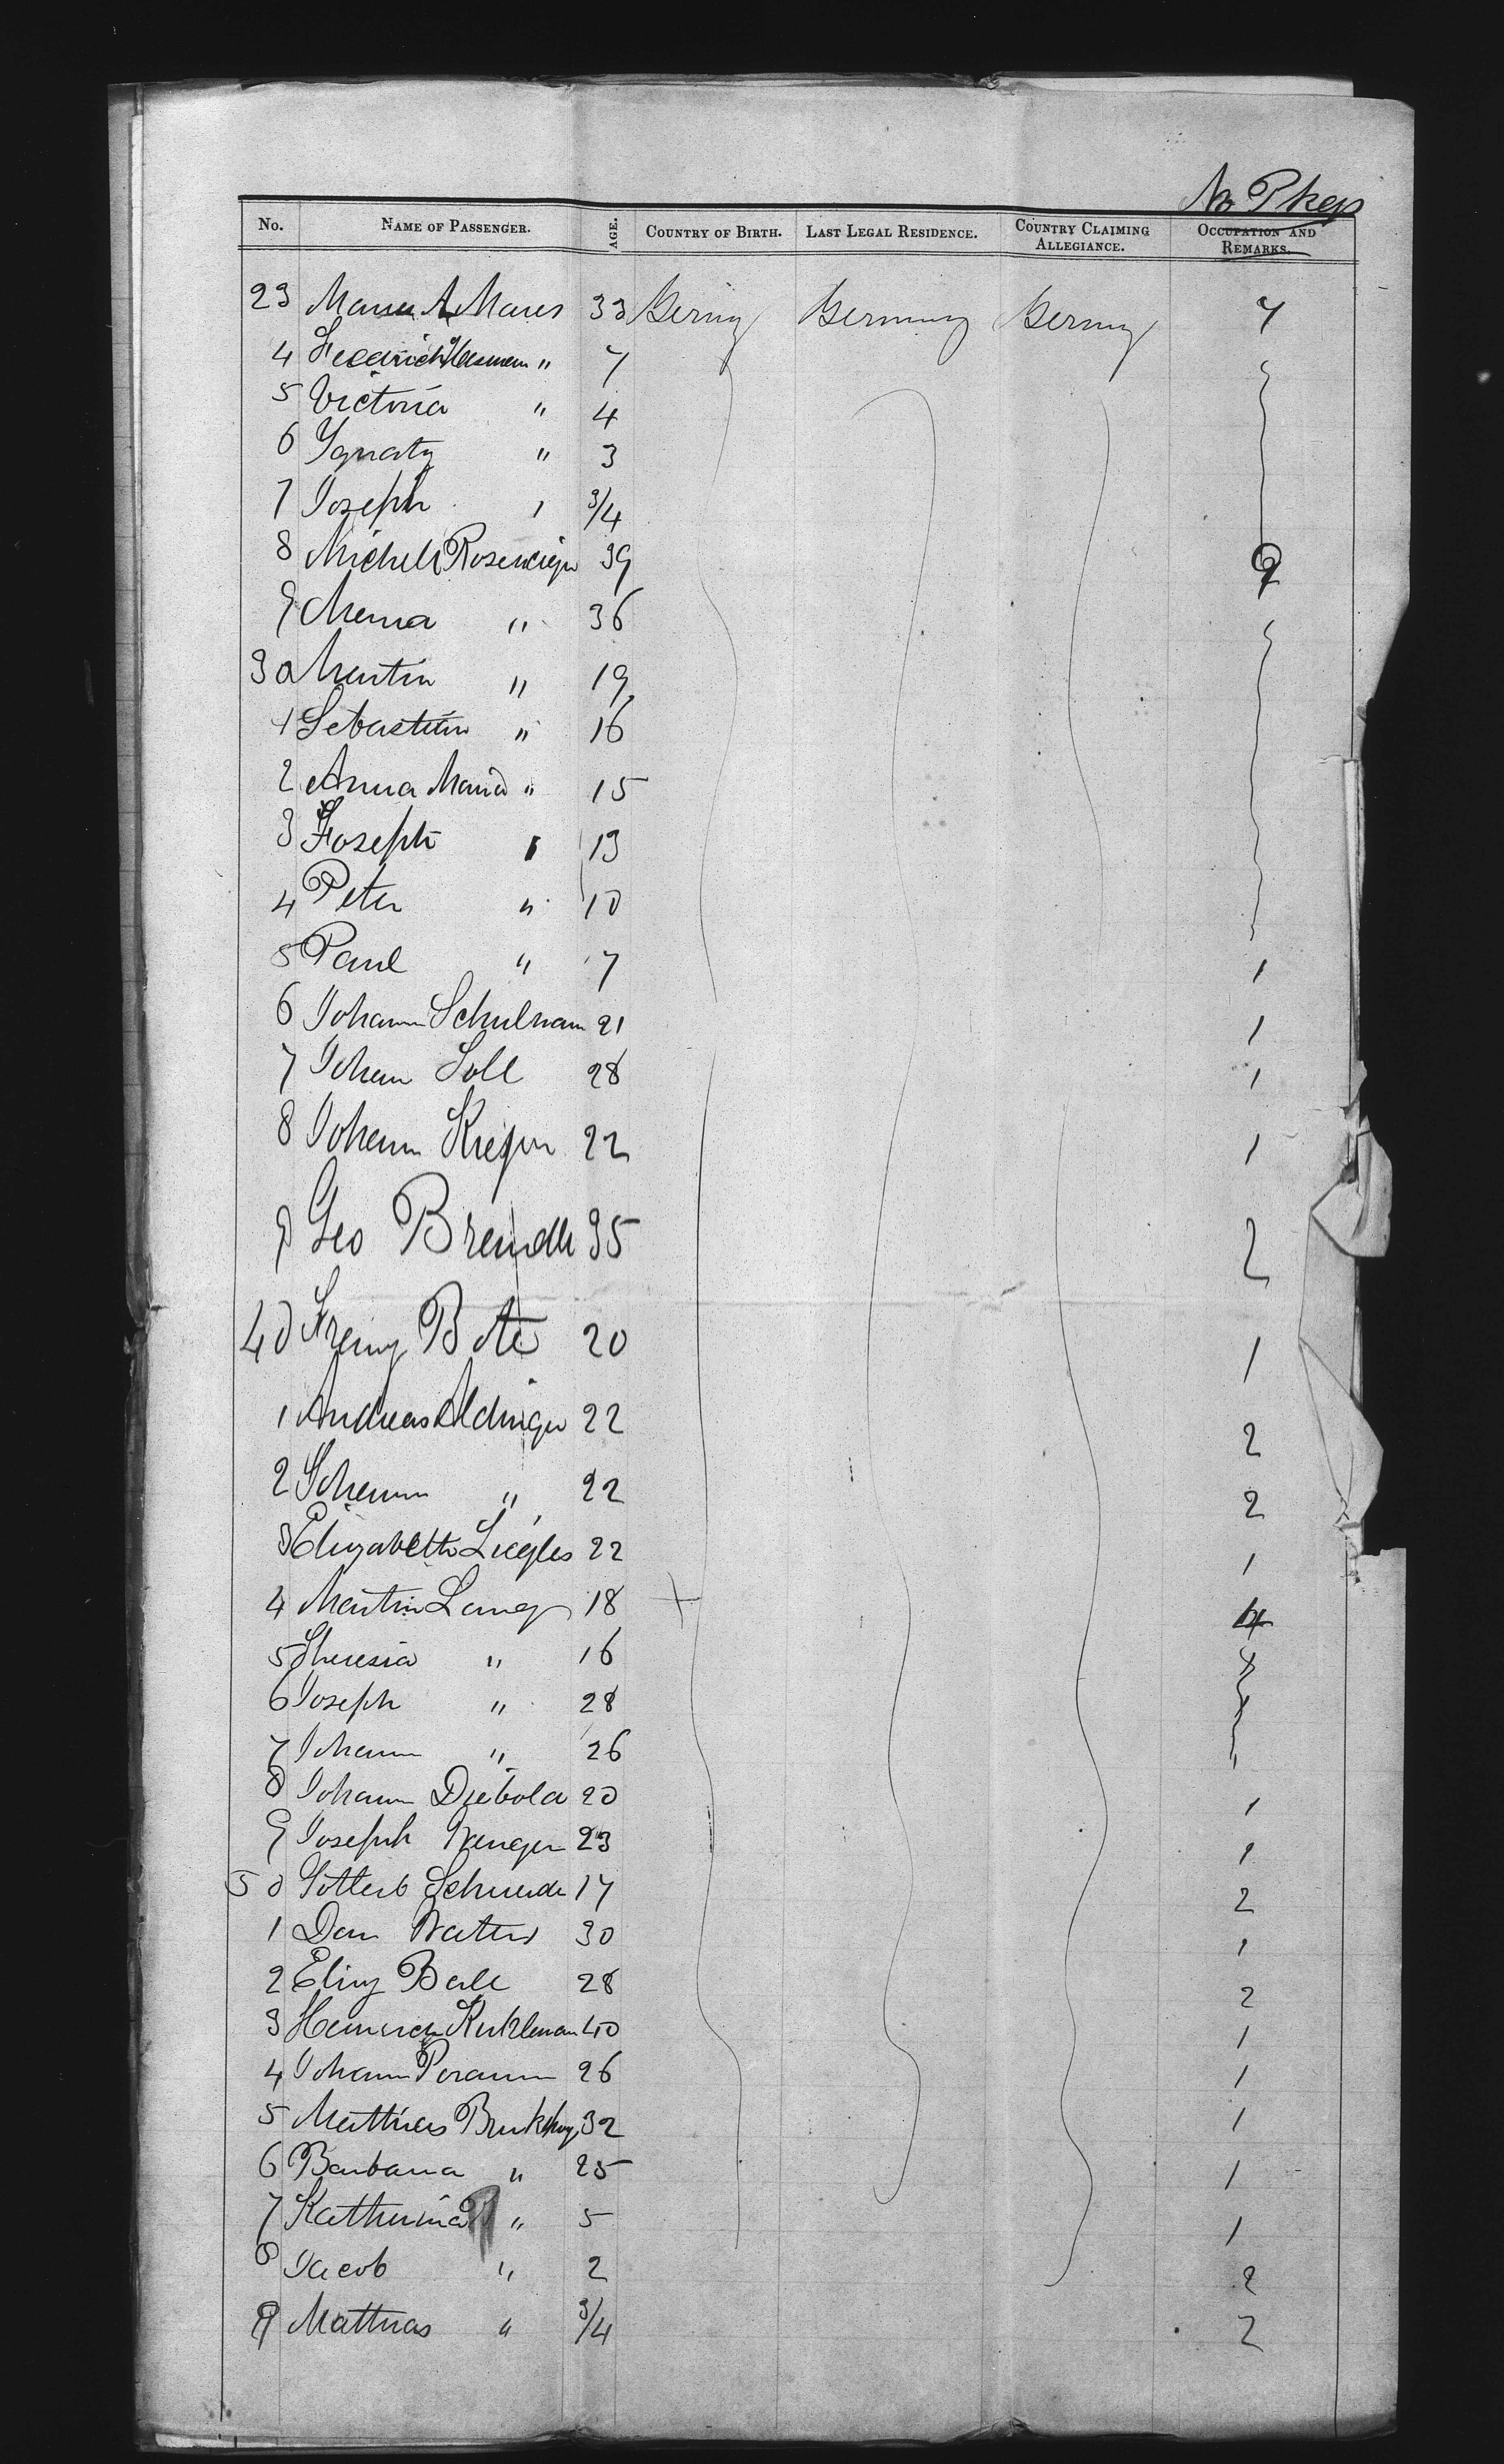 No Pkgs
No. NAME OF PASSENGER. AGE. COUNTRY OF BIRTH. LAST LEGAL RESIDENCE. COUNTRY CLAIMING ALLEGIANCE. OCCUPATION AND REMARKS.
23 Maria A Maies 33 Germy Germany Germy 7
4 Fredrich " 7
5 Victoria " 4
6 Ygnatz " 3
7 Joseph " 3/4
8 Michell 39 9
9 Menna " 36
30 Martin " 19
1 Sebastian " 16
2 Anna Maria " 15
3 Joseph " 13
4 Peter " 10
5 Paul " 7 1
6 Johann Schulman 21 1
7 Johann Soll 28 1
8 Johann 22 1
9 Geo Breindle 35 2
40 Franz 20 1
1 Andreas Aldinger 22 2
2 Johann " 22 2
3 Elizabeth Liegles 22 1
4 Martin Lang 18 4
5 Theresia " 16
6 Joseph " 28
7 Johann " 26
8 Johann Diebold 20 1
9 Joseph Wenger 23 1
50 Gottleib Schneide 17 2
1 Dan Watters 30 1
2 Eliny Balle 28 2
3 Heinrich 40 1
4 Johann 26 1
5 Matthias 32 1
6 Barbara " 25 1
7 Katherina " 5 1
8 Jacob " 2 2
9 Matthias " 3/4 2